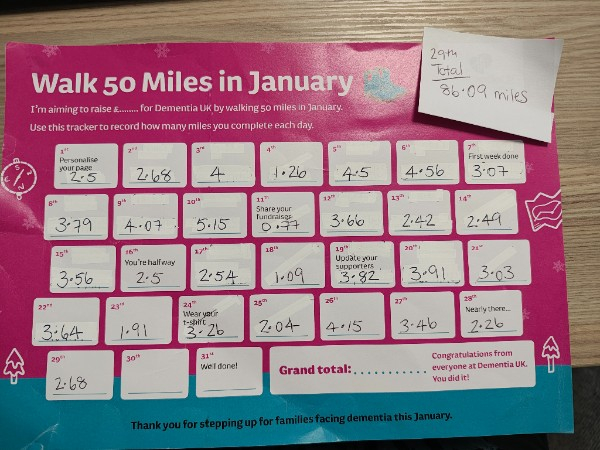 29th
Total
86.09 miles
Walk 50 Miles in January
I'm aiming to raise £........ for Dementia UK by walking 50 miles in January.
Use this tracker to record how many miles you complete each day.
1st
Personalise
your page
2.5
2nd
2.68
3rd
4
4th
1.26
5th
4.5
6th
4.56
7th
First week done
3.07
8th
3.79
9th
4.07
10th
5.15
11th
Share your
fundraiser
0.77
12th
3.66
13th
2.42
14th
2.49
15th
3.56
16th
You're half way
2.5
17th
2.54
18th
1.09
19th
Update your
supporters
3.82
20th
3.91
21st
3.03
22nd
3.64
23rd
1.91
24th
Wear your
t-shirt
3.26
25th
2.04
26th
4.15
27th
3.46
28th
Nearly there...
2.26
29th
2.68
30th
31st
Well done!
Grand total: ...........
Congratulations from
everyone at Dementia UK.
You did it!
Thank you for stepping up for families facing dementia this January.